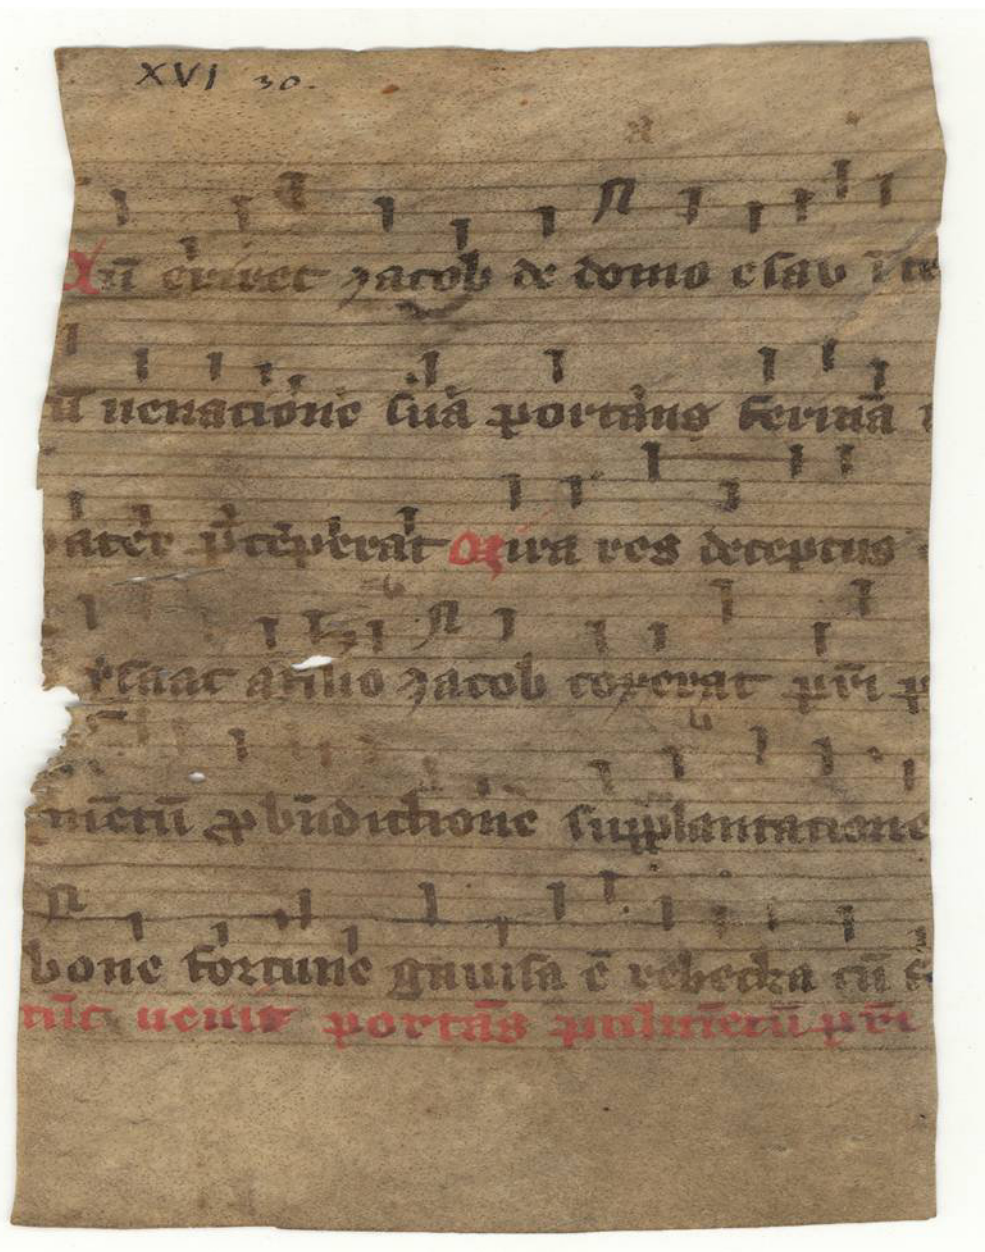 XVI 30.
Cū exiret Jacob de domo esau
ū uenacione suā portans ferinā
pater p̄ceperat Mira res deceptus
ysaac a filio Jacob coxerat pr̄i
mētū pro bn̄dictione supplantacione
bone fortune gauisa ē rebecka cū
tūc uenit portās pulmētū pr̄i